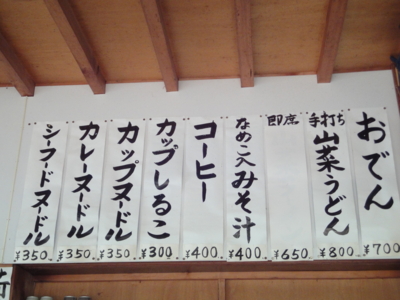 おでん
¥700
手打ち
山菜うどん
¥800
即席
¥650
なめこ入みそ汁
¥400
コーヒー
¥400.
カップしるこ
¥300
カップヌードル
¥350
カレーヌードル
¥350.
シーフードヌードル
¥350